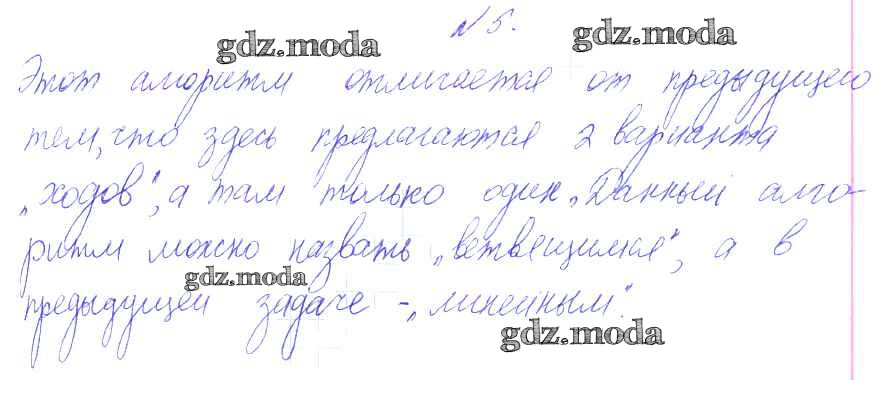 № 5.
gdz.moda gdz.moda
Этот алгоритм отличается от предыдущего
тем, что здесь предлагаются 2 варианта
„ходов“, а там только один. Данный алго-
ритм можно назвать „ветвящимся“, а в
gdz.moda
предыдущей задаче - „линейным“.
gdz.moda